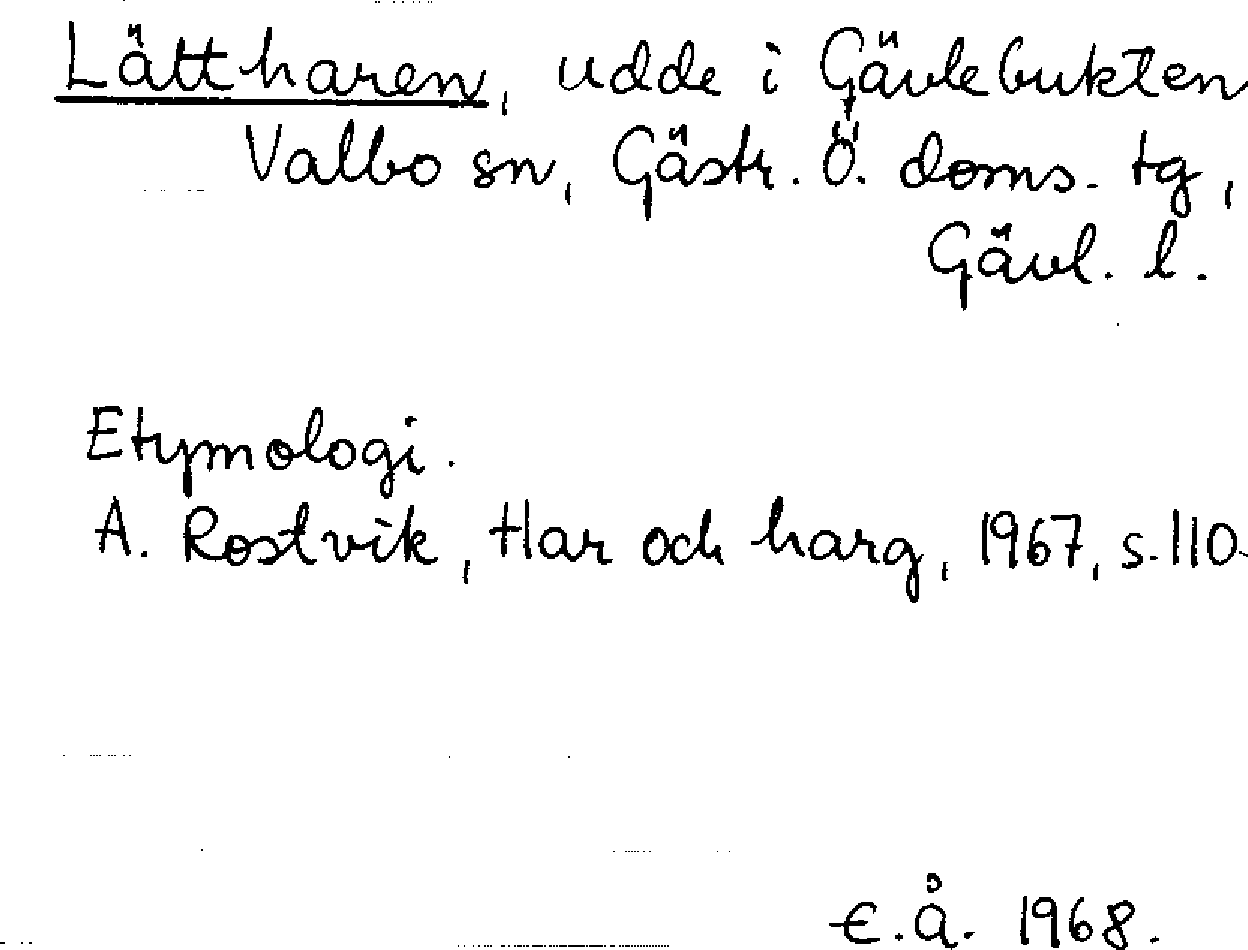 Lättharen, udde i Gävlebukten
Valbo sn, Gästr. Ö. doms. tg,
Gävl. l.
Etymologi.
A. Rostvik, Har och harg, 1967, s. 110.
E.Å. 1968.